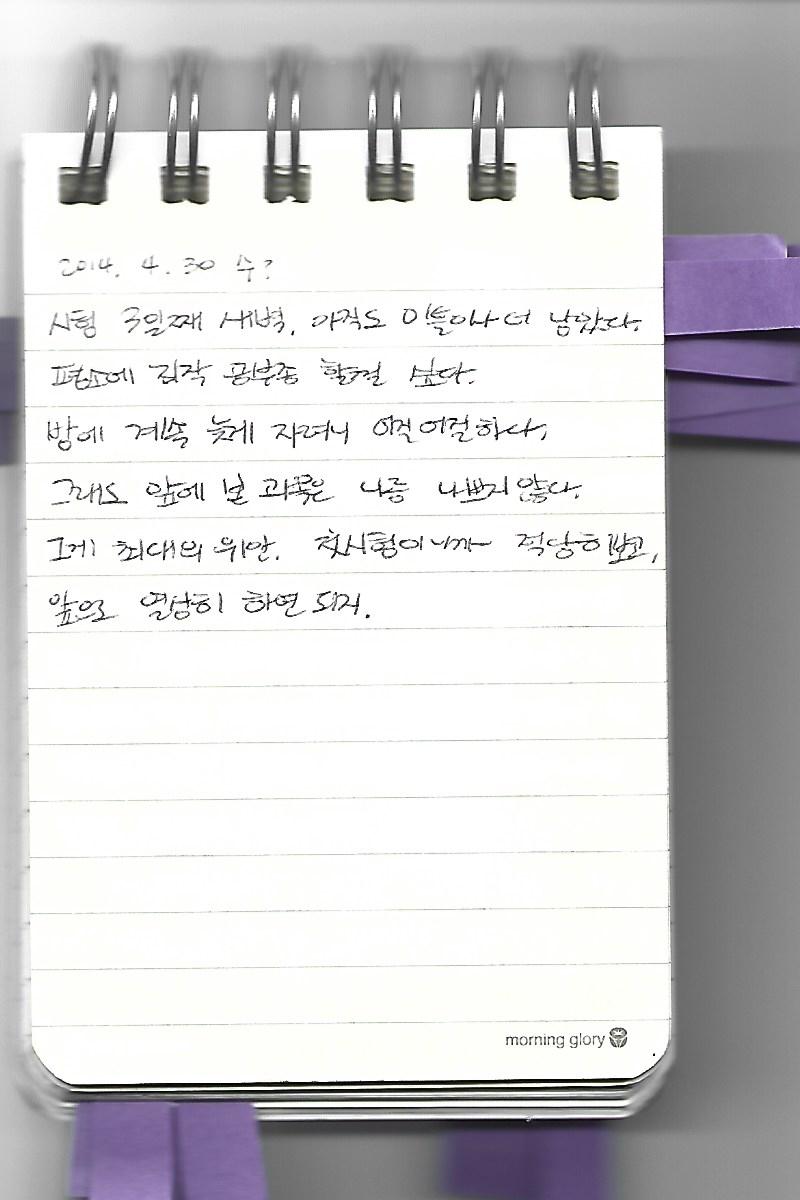 2014. 4. 30 수?
시험 3일째 새벽. 아직도 이틀이나 더 남았다.
평소에 진작 공부좀 할걸 싶다.
밤에 계속 늦게 자려니 어질어질하다.
그래도 앞에 본 과목은 나름 나쁘지 않다.
그게 최대의 위안. 첫시험이니까 적당히 보고,
앞으로 열심히 하면 되지.
morning glory